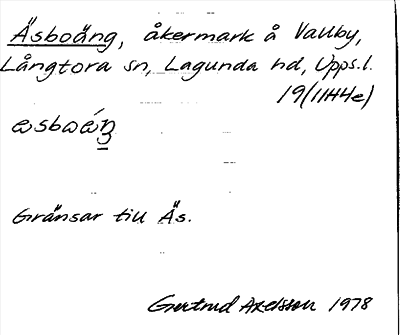 Äsboäng, åkermark å Vallby,
Långtora sn, Lagunda hd, Upps.l.
19(11H4e)
Gränsar till Äs.
Gertrud Axelsson 1978